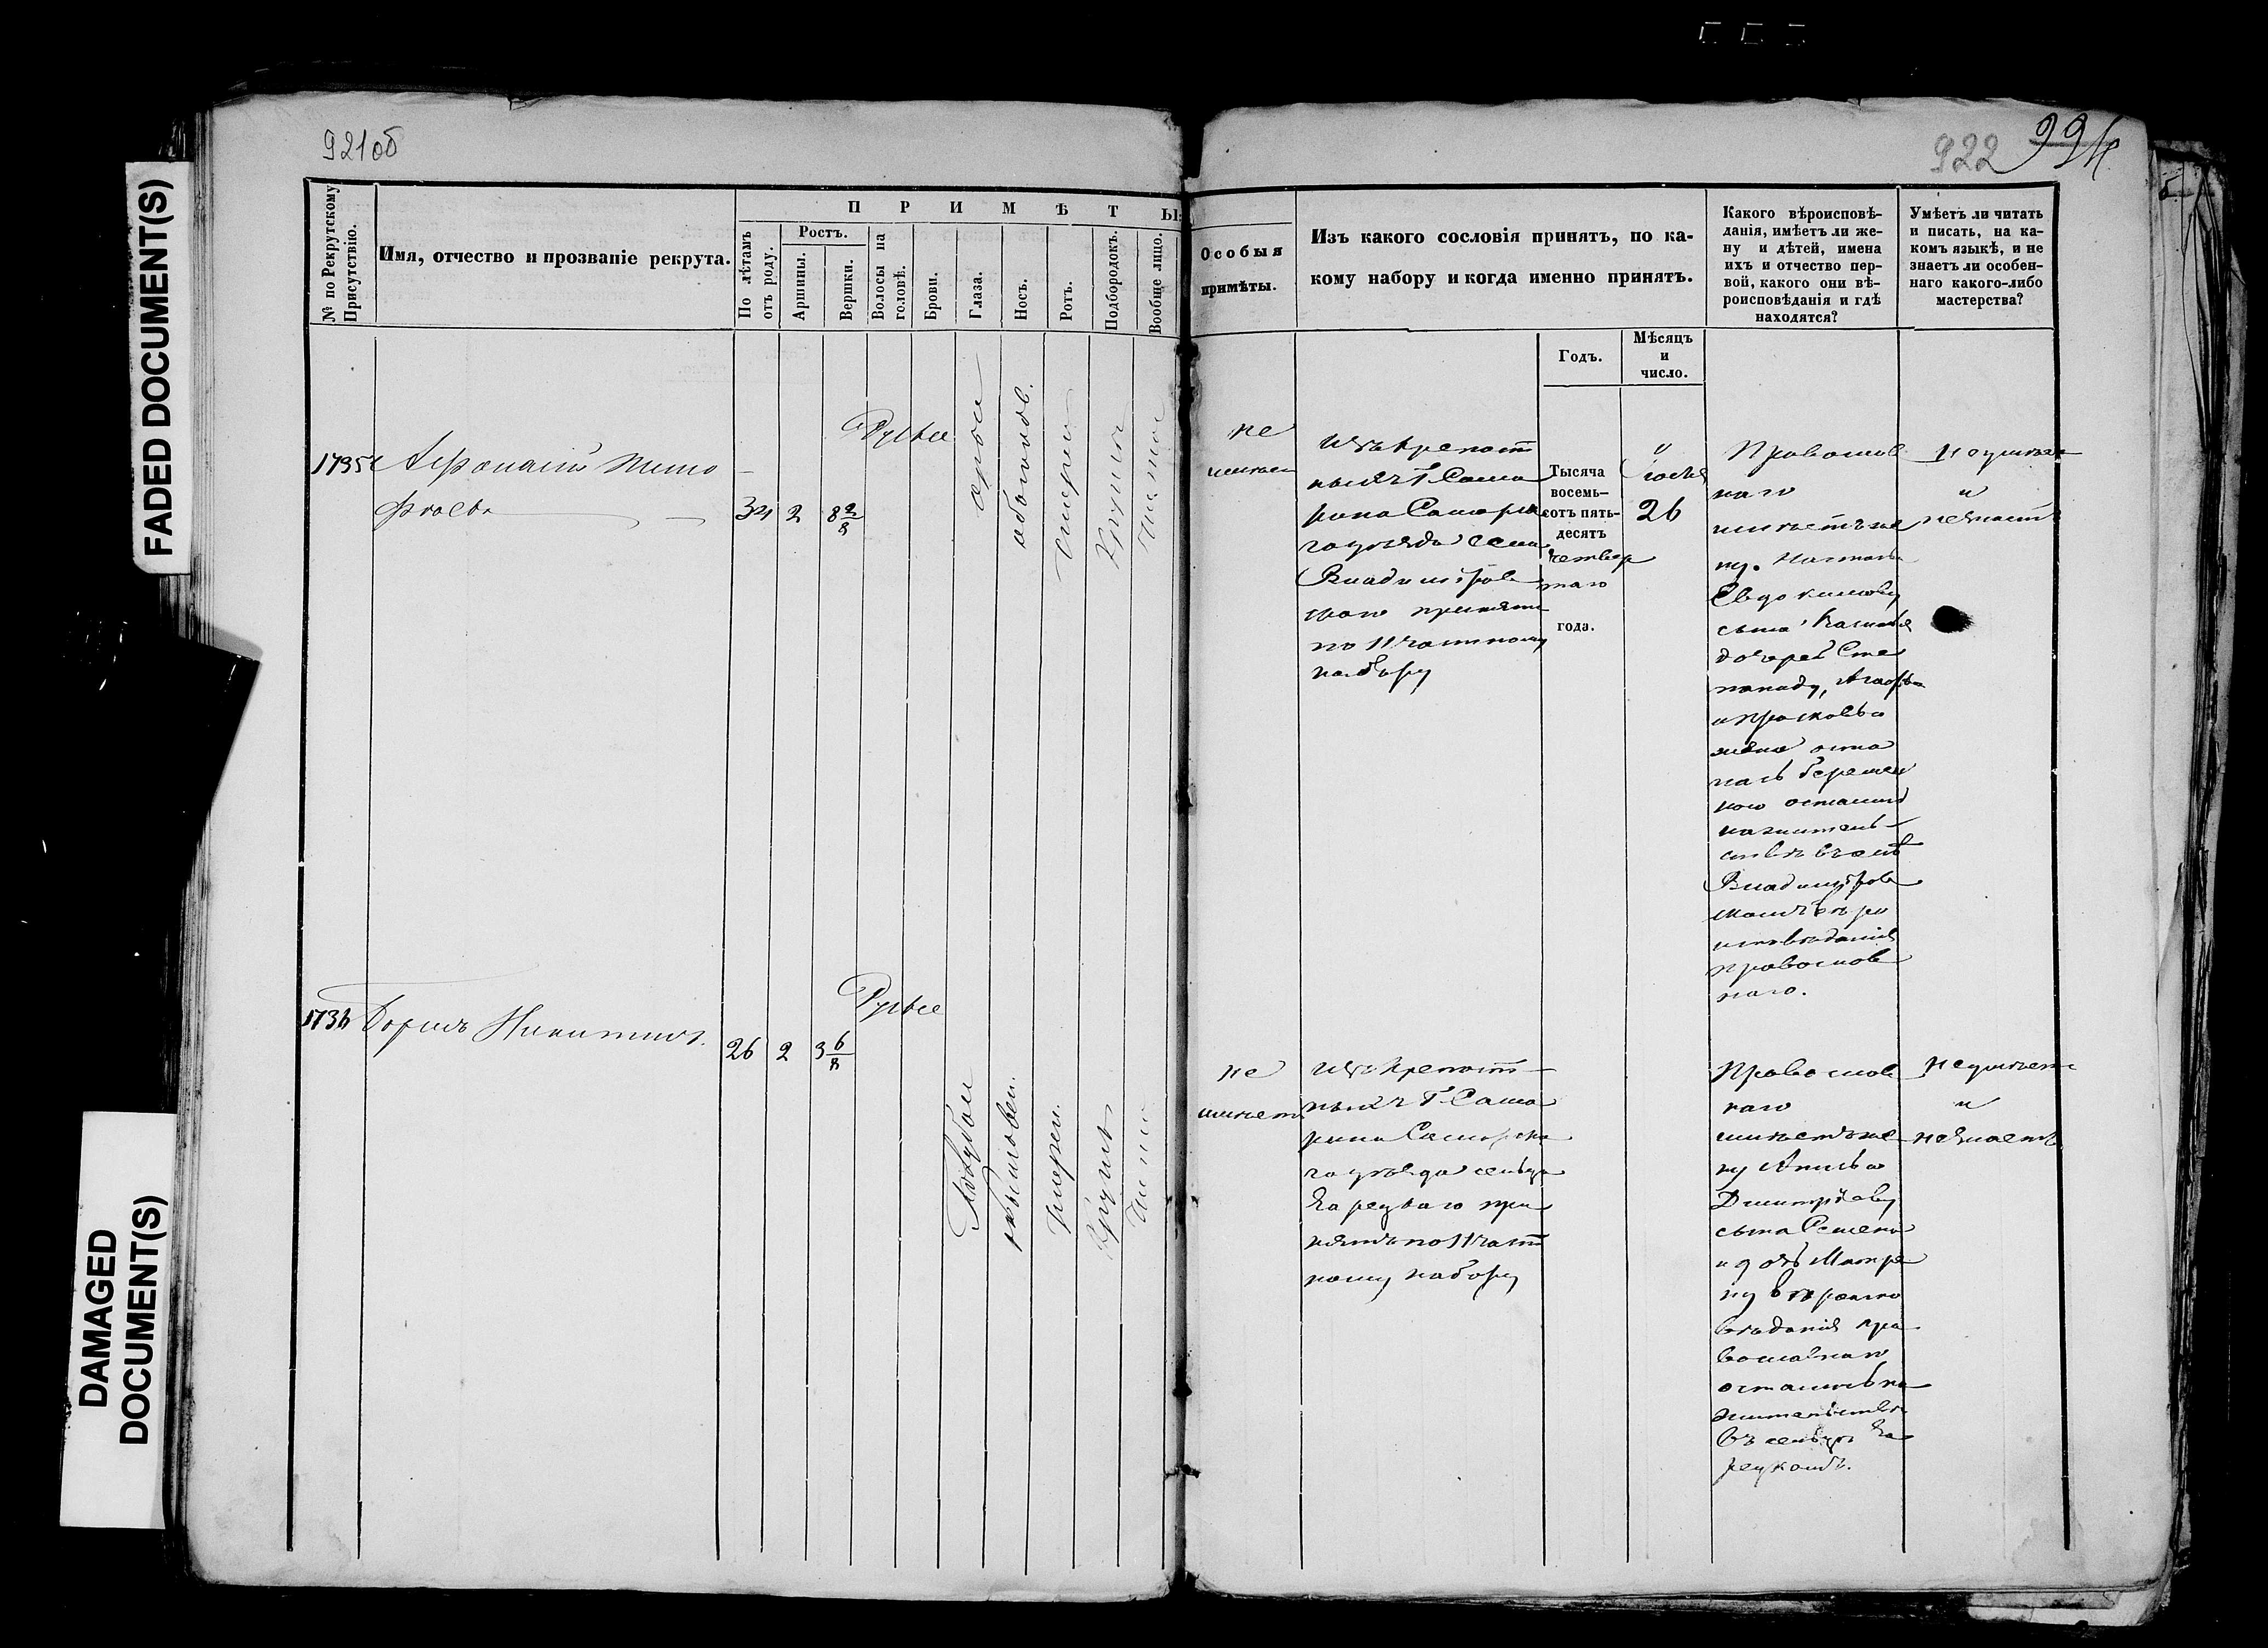 FADED DOCUMENT(S)
DAMAGED DOCUMENT(S)
921об
№ по Рекрутскому Присутствію.
Имя, отчество и прозваніе рекрута.
ПРИМѢТЫ:
По лѣтамъ отъ роду.
Ростъ.
Аршины.
Вершки.
Волосы на головѣ.
Брови.
Глаза.
Носъ.
Ротъ.
Подбородокъ.
Вообще лицо.
1735
Афонасій Тимо
фѣевъ
34 2 8 2/8
Русые
сѣрые
обыкнов.
Широк
Круглъ
Чистое
1736 Борисъ Никитинъ.
26 2 3 6/8
Русые
Голубые
обыкновен.
Широк.
Круглъ
Чисто
922 994
Особыя
примѣты.
Изъ какого сословія принятъ, по ка-
кому набору и когда именно принятъ.
Какого вѣроисповѣ-
данія, имѣетъ ли же-
ну и дѣтей, имена
ихъ и отчество пер-
вой, какого они вѣ-
роисповѣданія и гдѣ
находятся?
Умѣетъ ли читать
и писать, на ка-
комъ языкѣ, и не
знаетъ ли особен-
наго какого-либо
мастерства?
Годъ.
Мѣсяцъ
и
число.
не
имѣет
изъ крепост
ныхъ Г. Сама
рина Самарска
го уѣзда села
Владимиров
скаго принятъ
по 11 частному
набору
Тысяча
восемь-
сотъ пять-
десятъ
четвер
таго
года.
Іюля
26
Православ
наго
имѣетъ же
ну Наталью
Евдокимову
сына Василья
дочерей Сте
паниду, Агафью
и Прасковью
жена оста
лась беремен
ною
на житель
ствѣ въ селѣ
Владимиров
скомъ вѣро
исповѣданія
православ
наго.
Не умѣетъ
и
незнаетъ
не
имѣет
изъ крепост
ныхъ Г. Сама
рина Самарска
го уѣзда сельца
Зарецкаго при
нятъ по 11 част
ному набору
Православ
наго
имѣетъ же
ну
Дмитріеву
сына Семена
и дочь Матре
ну вѣроиспо
вѣданія пра
вославнаго
остались на
жительствѣ
въ сельцѣ За
рецкомъ.
Не умѣетъ
и
незнаетъ